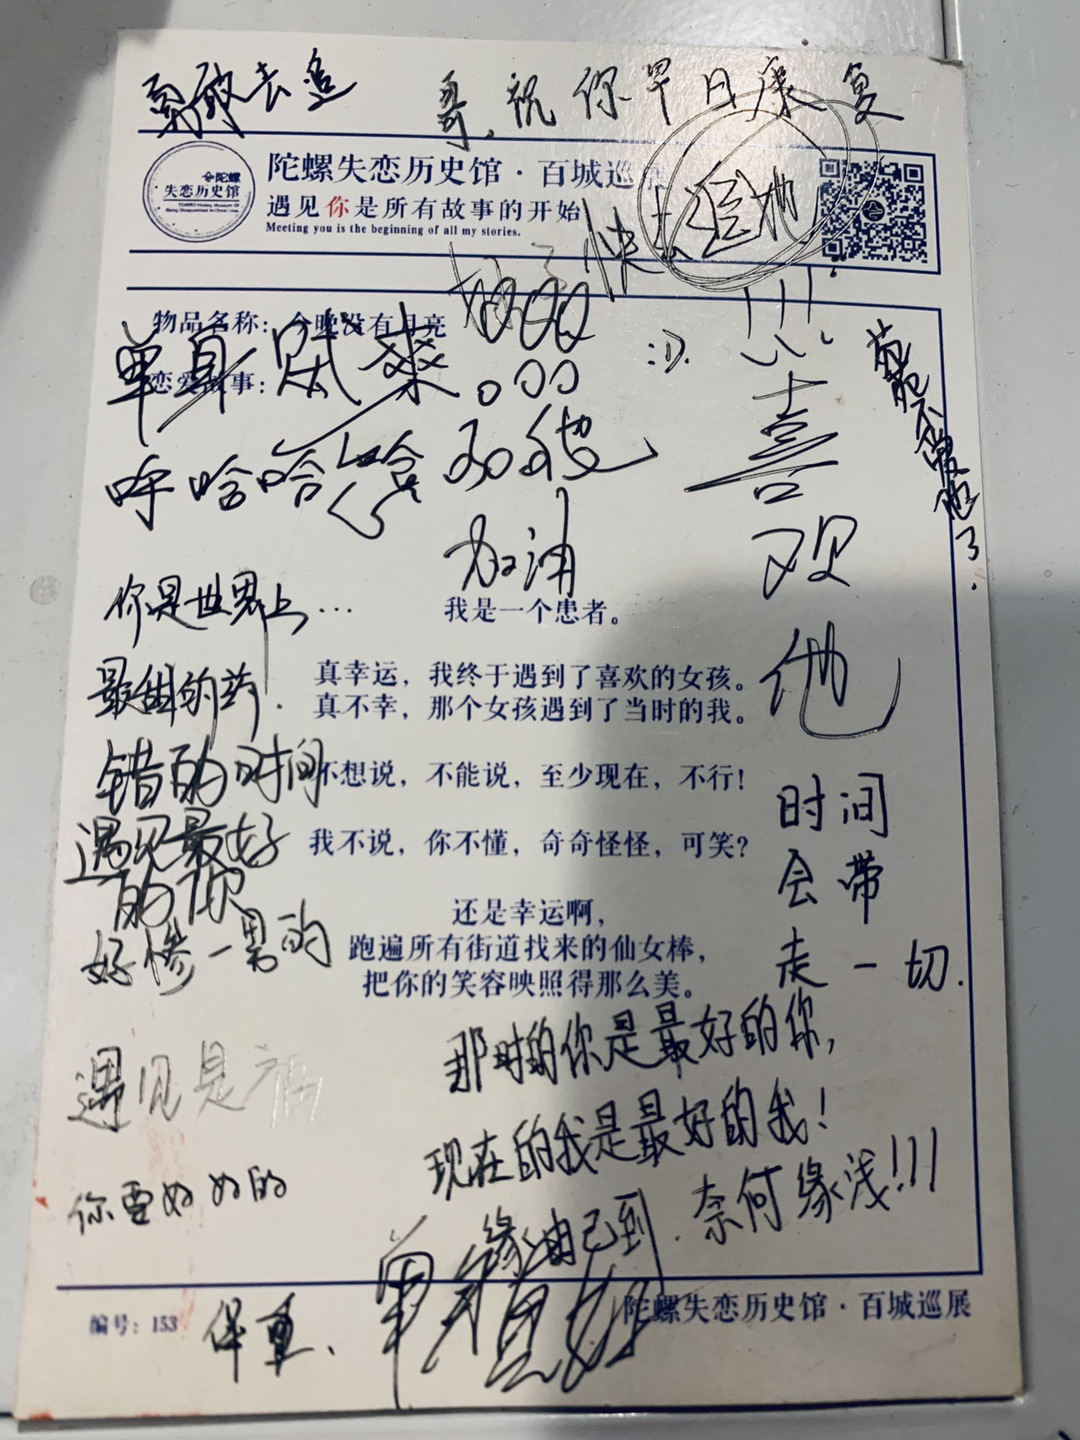 勇敢去追
哥，祝你早日康复
陀螺
失恋历史馆
陀螺失恋历史馆·百城巡
遇见你是所有故事的开始
Meeting you is the beginning of all my stories.
快去追她
!!!
物品名称：今晚没有月亮
恋爱故事：
单身贼爽
:D.
哈哈哈
加油
喜欢他
你是世界上…
最甜的药.
我是一个患者。
真幸运，我终于遇到了喜欢的女孩。
真不幸，那个女孩遇到了当时的我。
不想说，不能说，至少现在，不行！
我不说，你不懂，奇奇怪怪，可笑？
还是幸运啊，
跑遍所有街道找来的仙女棒，
把你的笑容映照得那么美。
错的时间
遇见最好
的你
好惨一男的
时间
会带
走一切.
遇见是福
你要好好的
那时的你是最好的你，
现在的我是最好的我！
缘由己到.奈何缘浅!!!
编号：153
保重、
单身真好
陀螺失恋历史馆·百城巡展